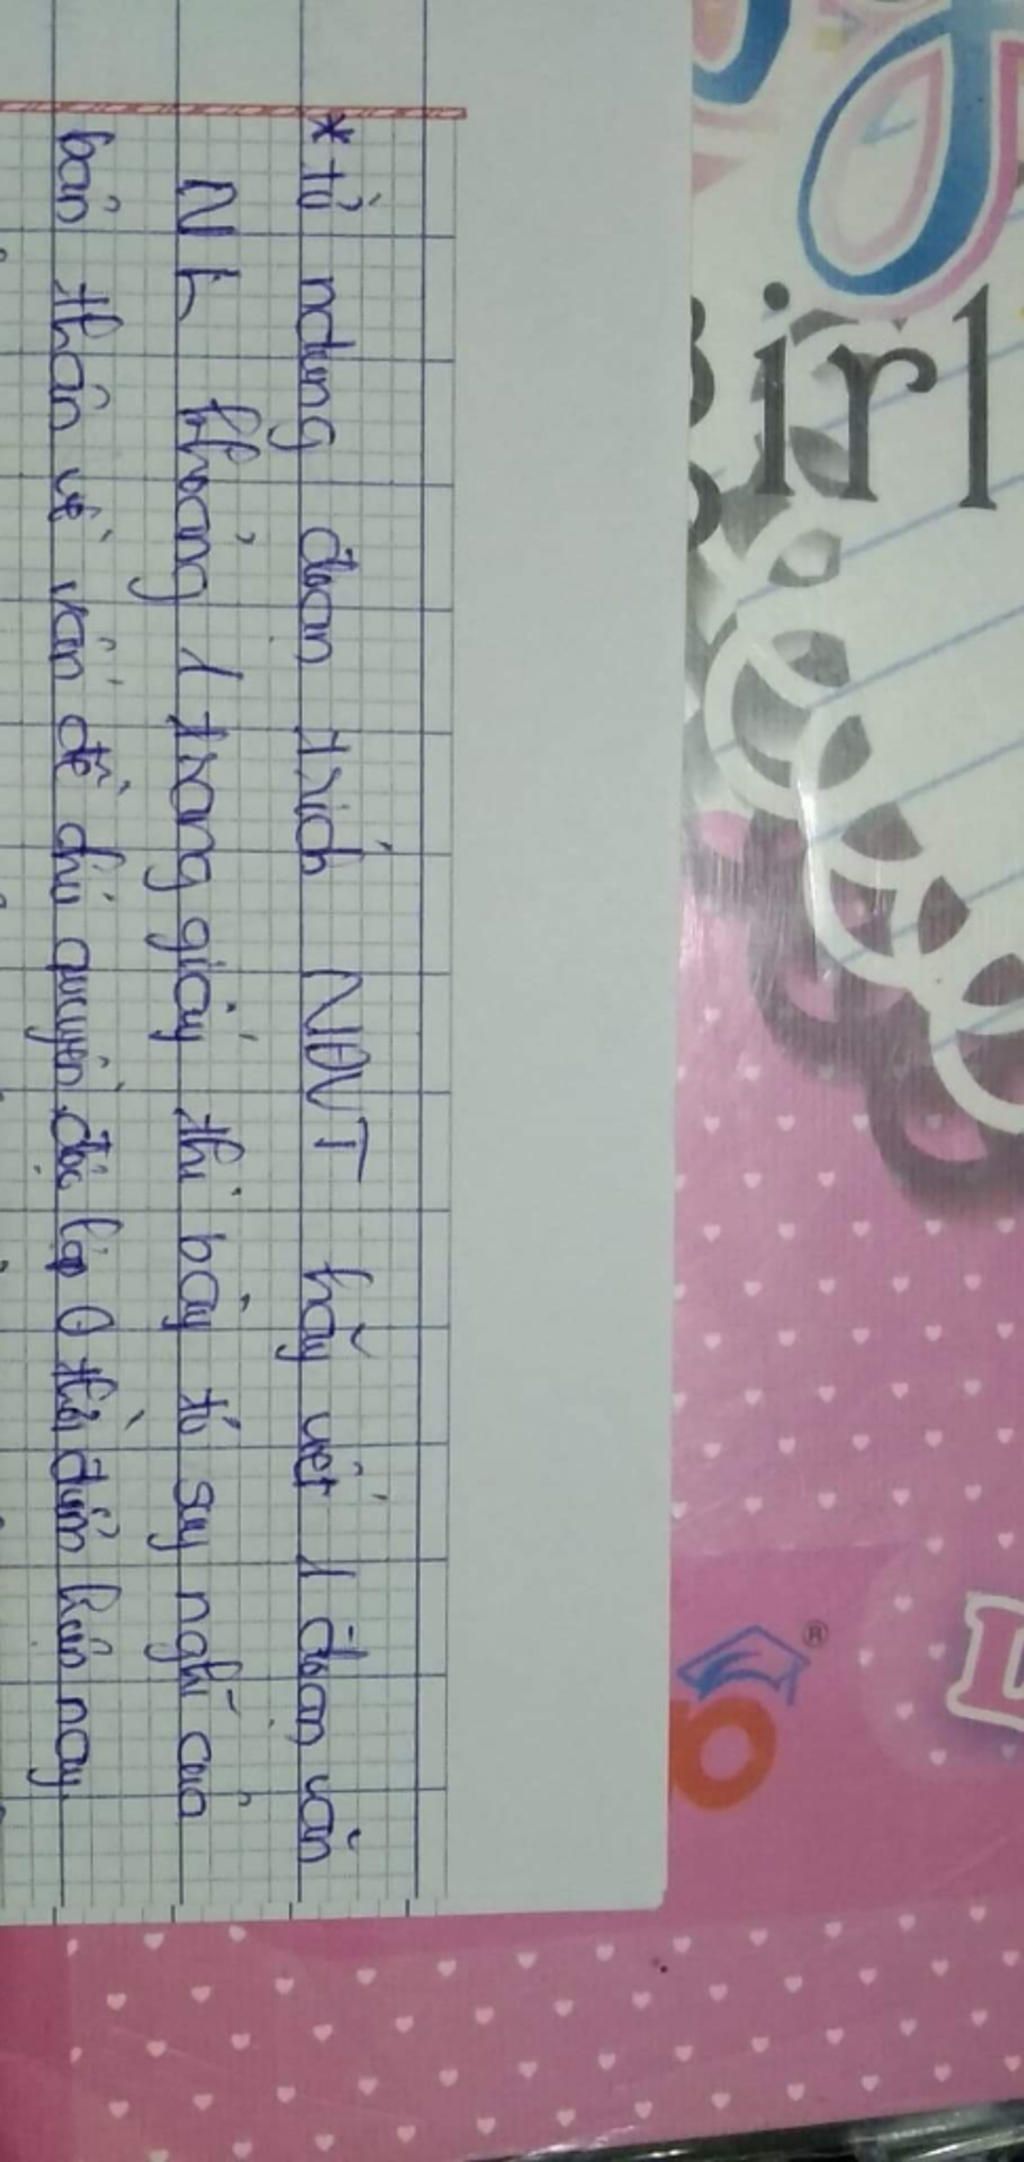 * từ ndung đoạn trích NĐVT hãy viết 1 đoạn văn
NL khoảng 1 trang giấy thi bày tỏ suy nghĩ của
bản thân về vấn đề chủ quyền độc lập ở thời điểm hiện nay.
irl
L
®